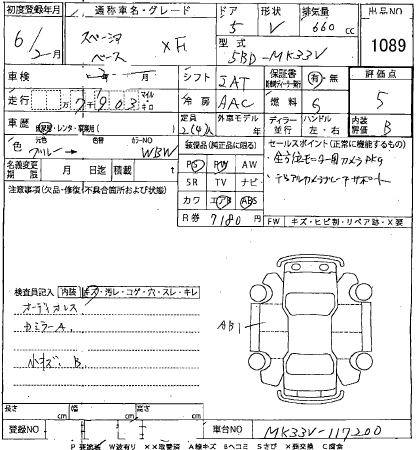 初度登録年月 通称車名・グレード ドア 形状 排気量 出品NO
6/2月 スペーシア ベース XF 5 V 660 cc 1089
型式 5BD-MK33V
車検 年 月 シフト IAT 保証書 有・無 評価点
走行 万 7千903 マイル キロ 冷房 AAC 燃料 5
車歴 自家用・レンタ・事業用( ) 定員 2(4)人 外車モデル 年 ディーラー 並行 ハンドル 左・右 内装評価 B
色 元色 ブルー 色替 カラーNO WBW 装備品(純正品に限る) セールスポイント(正常に機能するもの)
PS PW AW ・全方位モニター用カメラPKG
名義変更期限 月 日迄 積載 t SR TV ナビ ・デュアルカメラブレーキサポート
注意事項(欠品・修復/不具合箇所および状態) カワ エアB ABS
R券 7180円 FW キズ・ヒビ割・リペア跡・X要
検査員記入 内装 キズ・汚レ・コゲ・穴・スレ・キレ
オーディオレス
カミラーA
小キズ B
AB1
長さ cm 幅 cm 高さ cm
登録NO 車台NO MK33V-117200
P 要塗装 W波有り XX取替済 A線キズ Bヘコミ Sさび X要交換 C腐食